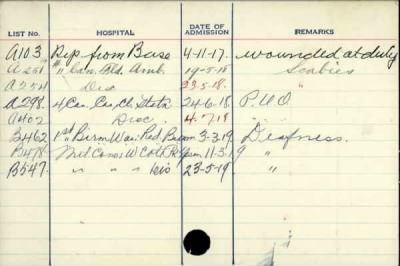 LIST No. HOSPITAL DATE OF ADMISSION REMARKS
A103 Rep from Base 4-11-17. wounded at duty
A251 " Can. Fld. Amb. 19-5-18 Scabies
A254 Dis 23.5.18 "
A298 4 Can. Cas. Cl. Statn 24-6-18 P.U.O
A402 Disc. 4-7-18 "
B462 1st Birm. War. 3-3-19 Deafness.
B478 Mil Conv 11-3-19 "
B547 " " " 23-5-19 "